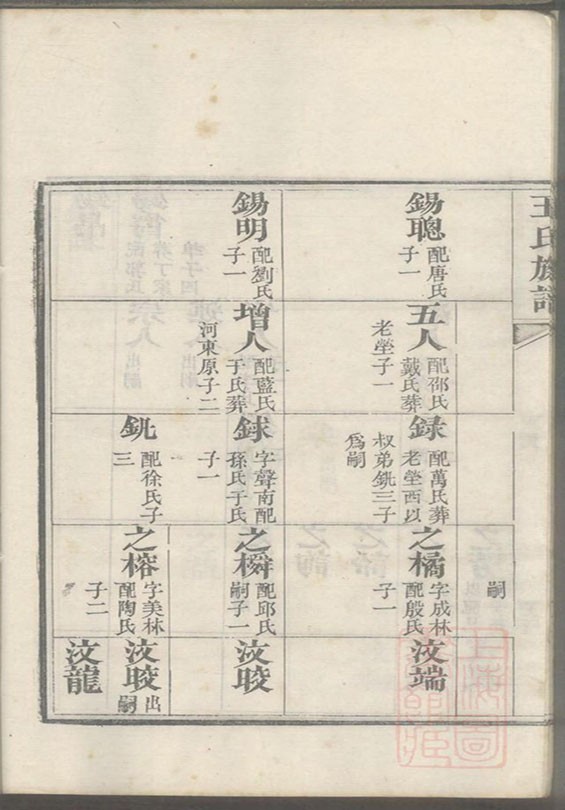 王氏族譜
嗣
錫聰
配唐氏
子一
五人
配邵氏
戴氏葬
老塋子一
録
配萬氏葬
老塋西以
叔弟銚三子
爲嗣
之橘
字成林
配殷氏
子一
汶端
錫明
配劉氏
子一
增人
配藍氏
于氏葬
河東原子二
銶
字聲南配
孫氏于氏
子一
之橓
配邱氏
嗣子一
汶
銚
配徐氏子
三
之榕
字美林
配陶氏
子二
汶
出嗣
汶龍